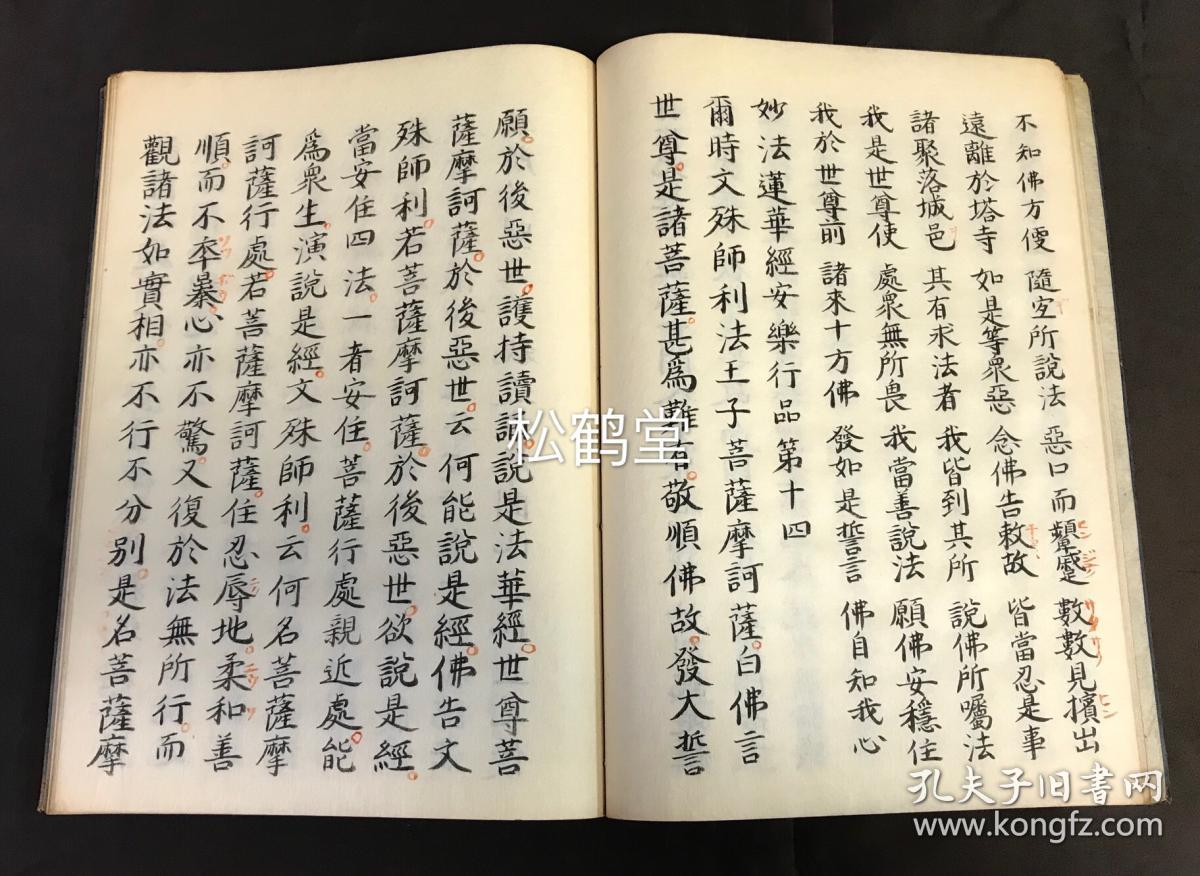 不知佛方便 隨宜所說法 惡口而顰蹙 數數見擯出
遠離於塔寺 如是等衆惡 念佛告敕故 皆當忍是事
諸聚落城邑 其有求法者 我皆到其所 說佛所囑法
我是世尊使 處衆無所畏 我當善說法 願佛安穩住
我於世尊前 諸來十方佛 發如是誓言 佛自知我心
妙法蓮華經安樂行品第十四
爾時文殊師利法王子菩薩摩訶薩。白佛言
世尊。是諸菩薩。甚爲難有。敬順佛故。發大誓
願。於後惡世。護持讀誦。說是法華經。世尊菩
薩摩訶薩。於後惡世。云何能說是經。佛告文
殊師利。若菩薩摩訶薩。於後惡世。欲說是經。
當安住四法。一者安住。菩薩行處親近處。能
爲衆生。演說是經。文殊師利。云何名菩薩摩
訶薩行處。若菩薩摩訶薩。住忍辱地。柔和善
順。而不卒暴。心亦不驚。又復於法無所行。而
觀諸法如實相。亦不行不分別。是名菩薩摩
松鹤堂
孔夫子旧书网
www.kongfz.com